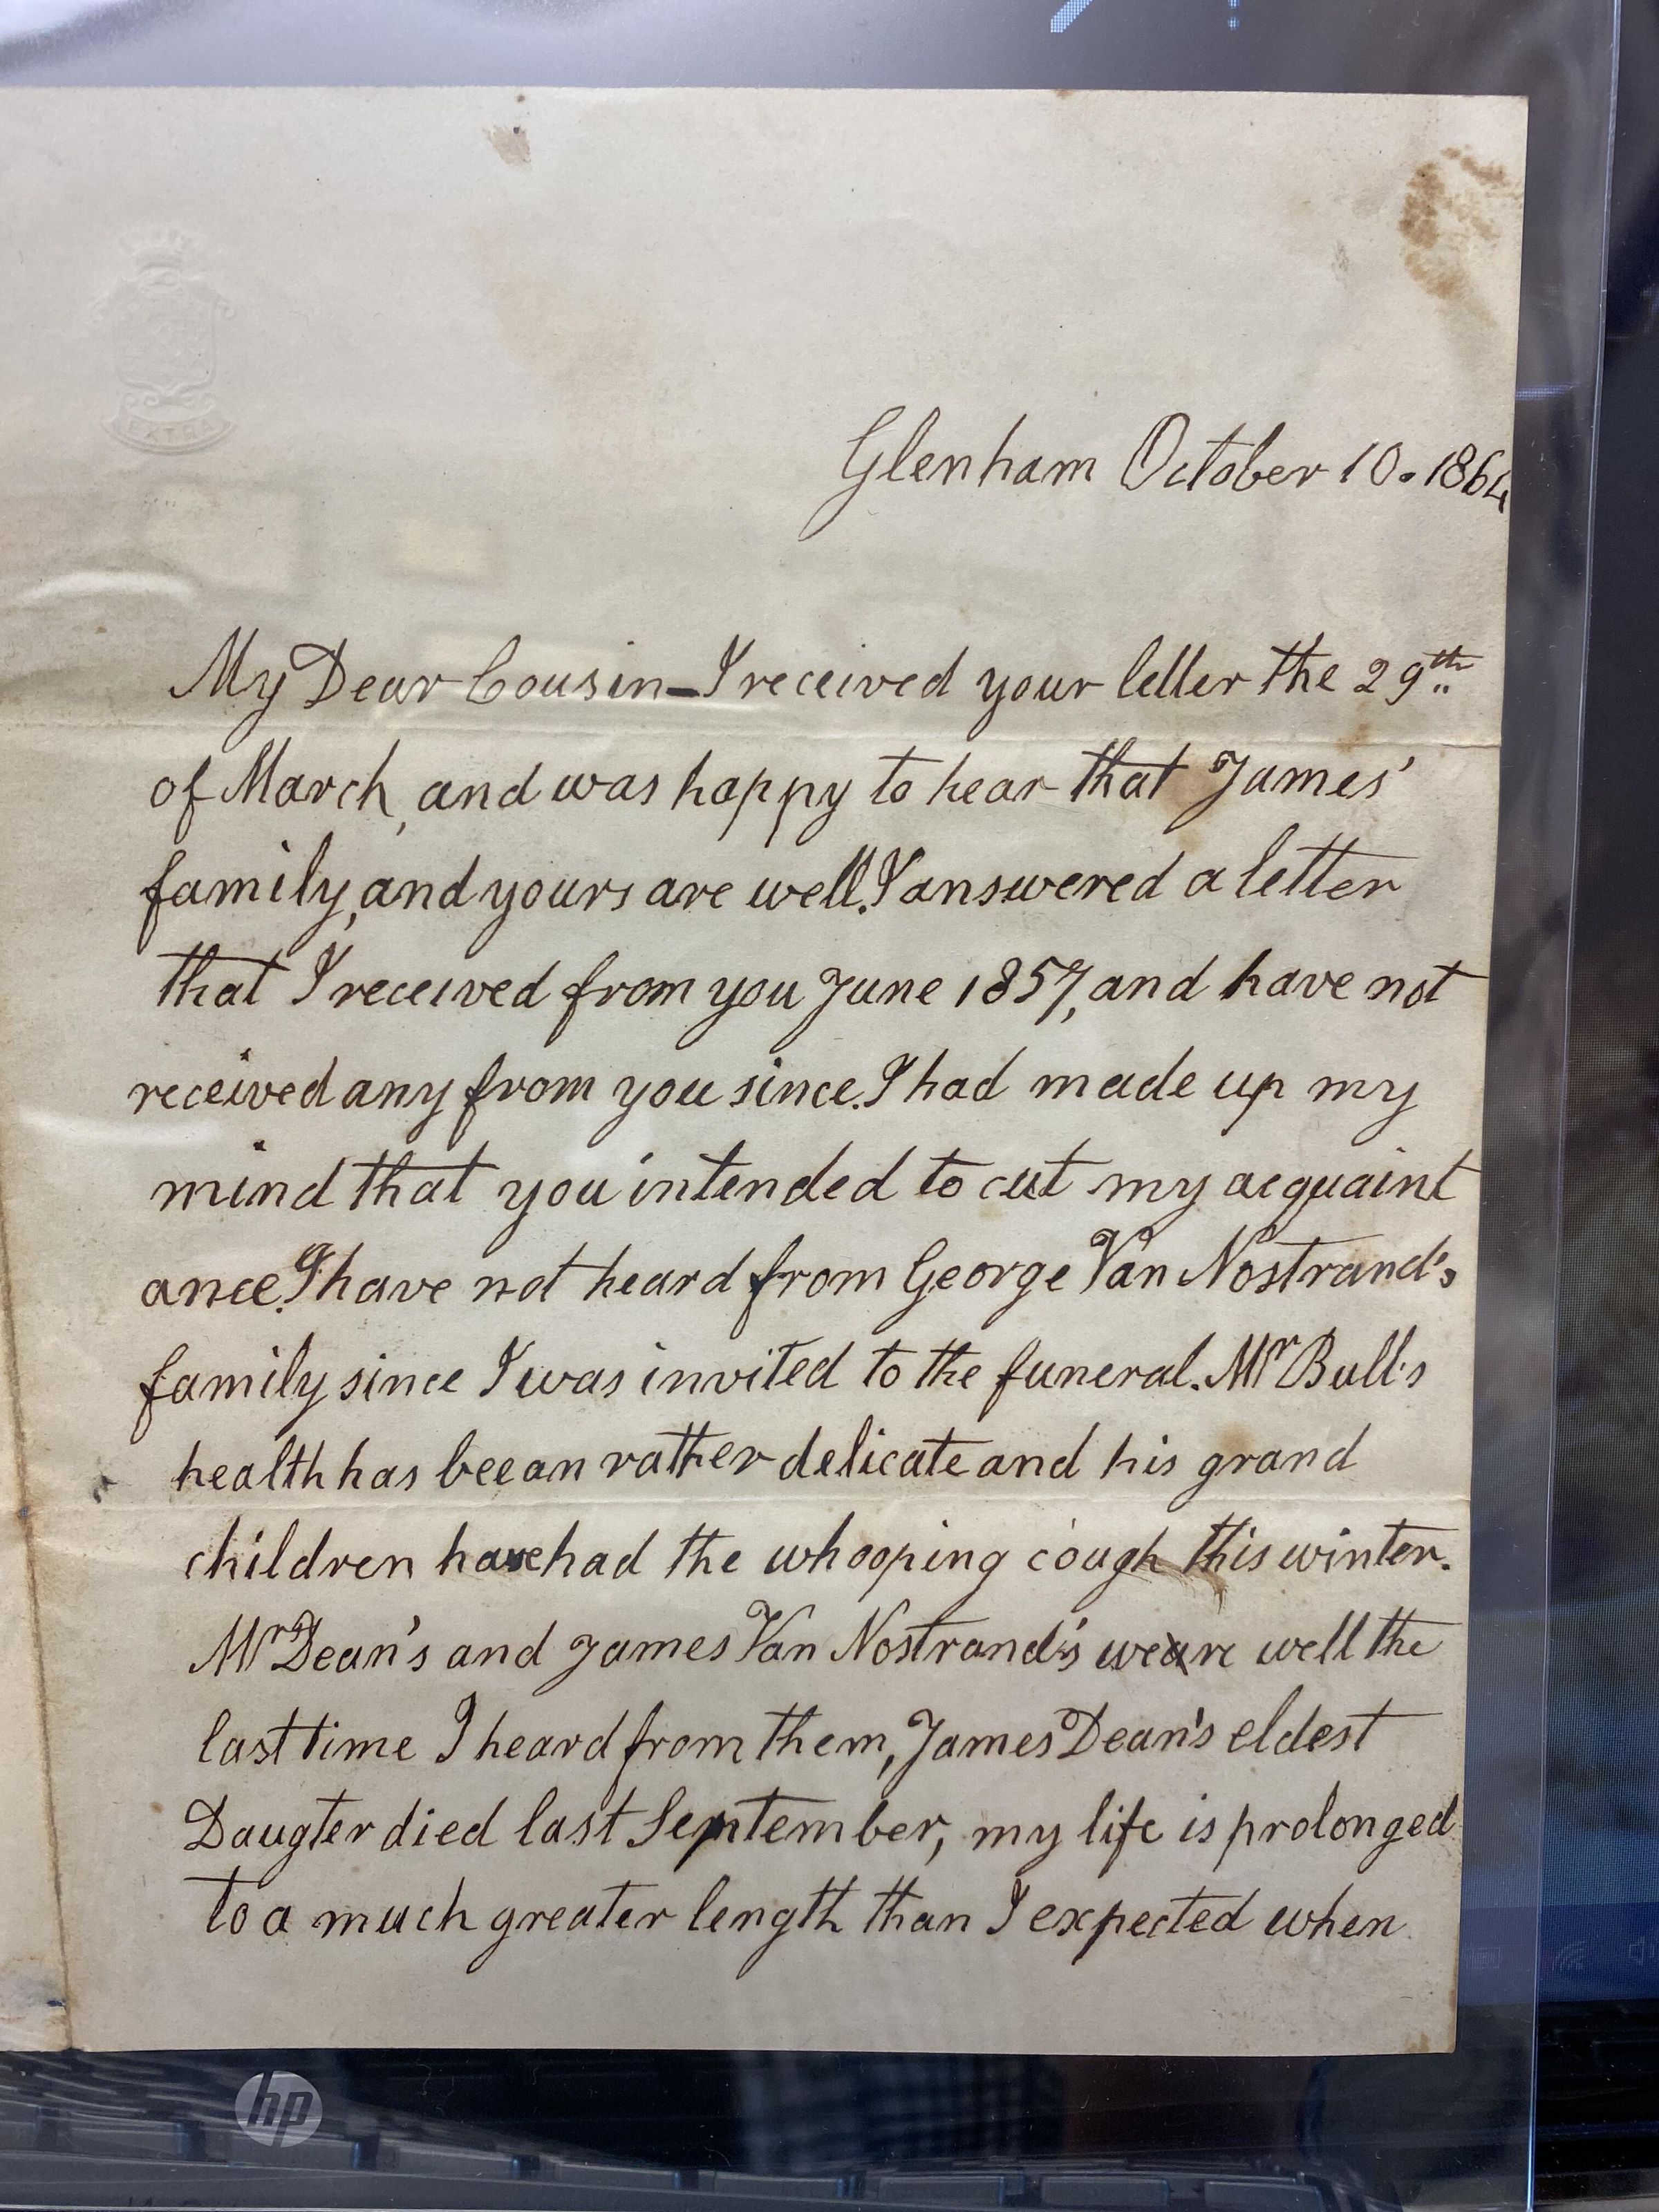 EXTRA
Glenham October 10. 1864
My Dear Cousin - I received your letter the 29th
of March, and was happy to hear that James'
family, and yours are well. I answered a letter
that I received from you June 1857, and have not
received any from you since. I had made up my
mind that you intended to cut my acquaint
ance. I have not heard from George Van Nostrand's
family since I was invited to the funeral. Mr Bull's
health has beean rather delicate and his grand
children have had the whooping cough this winter.
Mr Dean's and James Van Nostrand's weare well the
last time I heard from them, James Dean's eldest
Daugter died last September, my life is prolonged
to a much greater length than I expected when
hp